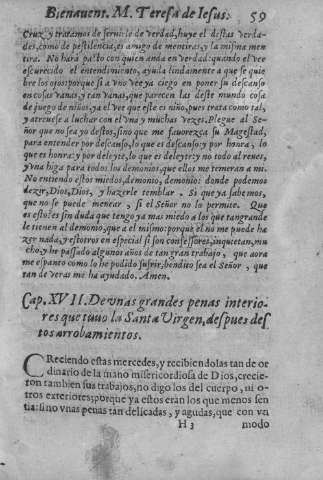 Bienauent. M. Teresa de Iesus. 59
Cruz, y tratamos de seruirle de verdad, huye el destas verda-
des, como de pestilencia, es amigo de mentiras, y la misma men
tira. No hara pacto con quien anda en verdad: quando el vee
escurecido el entendimiento, ayuda lindamente a que se quie
bre los ojos: porque si a vno vee ya ciego en poner su descanso
en cosas vanas, y tan vanas, que parecen las deste mundo cosa
de juego de niños, ya el vee que este es niño, pues trata como tal,
y atreuese a luchar con el vna y muchas vezes. Plegue al Se-
ñor que no sea yo destos, sino que me fauorezca su Magestad,
para entender por descanso, lo que es descanso: y por honra, lo
que es honra: y por deleyte, lo que es deleyte: y no todo al reues,
y vna higa para todos los demonios, que ellos me temeran a mi.
No entiendo estos miedos, demonio, demonio: donde podemos
dezir, Dios, Dios, y hazerle temblar. Si que ya sabemos,
que no se puede menear, si el Señor no lo permite. Que
es esto? es sin duda que tengo ya mas miedo a los que tan grande
le tienen al demonio, que a el mismo: porque el no me puede ha
zer nada, y estotros en especial si son confessores, inquietan, mu
cho, y he passado algunos años de tan gran trabajo, que aora
me espanto como lo he podido sufrir, bendito sea el Señor, que
tan de veras me ha ayudado. Amen.
Cap. XVII. De vnas grandes penas interio-
res que tuuo la Santa Virgen, despues des
tos arrobamientos.
CReciendo estas mercedes, y recibiendolas tan de or
dinario de la mano misericordiosa de Dios, crecie-
ron tambien sus trabajos, no digo los del cuerpo, ni o-
tros exteriores; porque ya estos eran los que menos sen
tia: sino vnas penas tan delicadas, y agudas, que con vn
H 3 modo